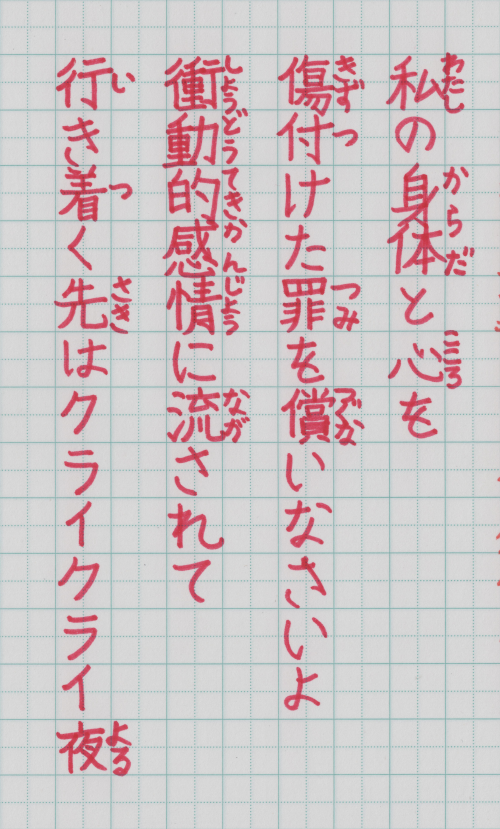 私の身体と心を
わたし からだ こころ
傷付けた罪を償いなさいよ
きずつ つみ つぐな
衝動的感情に流されて
しょうどうてきかんじょう なが
行き着く先はクライクライ夜
い つ さき よる